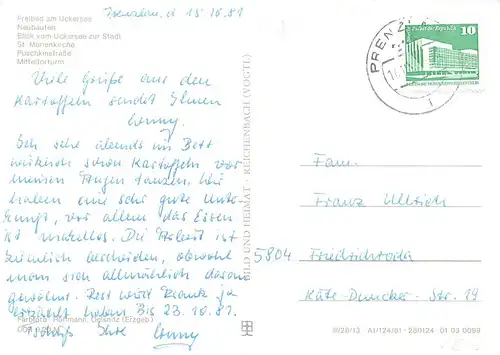 Prenzlau, d 15.10.81
Freibad am Uckersee
Neubauten
Blick vom Uckersee zur Stadt
St. Marienkirche
Puschkinstraße
Mitteltorturm
Viele Grüße aus den
Kartoffeln sendet Ihnen
Conny.
Ich sehe abends im Bett
wirklich schon Kartoffeln vor
meinen Augen tanzen. Wir
haben eine sehr gute Unter-
kunft, vor allem das Essen
ist makellos. Die Arbeit ist
ziemlich bescheiden, obwohl
man sich allmählich daran
gewöhnt. Rest wird Frank ja
erzählt haben. Bis 23.10.81.
Ihre Conny
Farbfoto: Hoffmann, Oelsnitz (Erzgeb.)
BILD UND HEIMAT · REICHENBACH (VOGTL)
PRENZLAU
10
Fam.
Franz Ullrich
5804 Friedrichroda
Käte-Duncker-Str. 14
III/26/13 A1/124/81 - 280124 01 03 0099